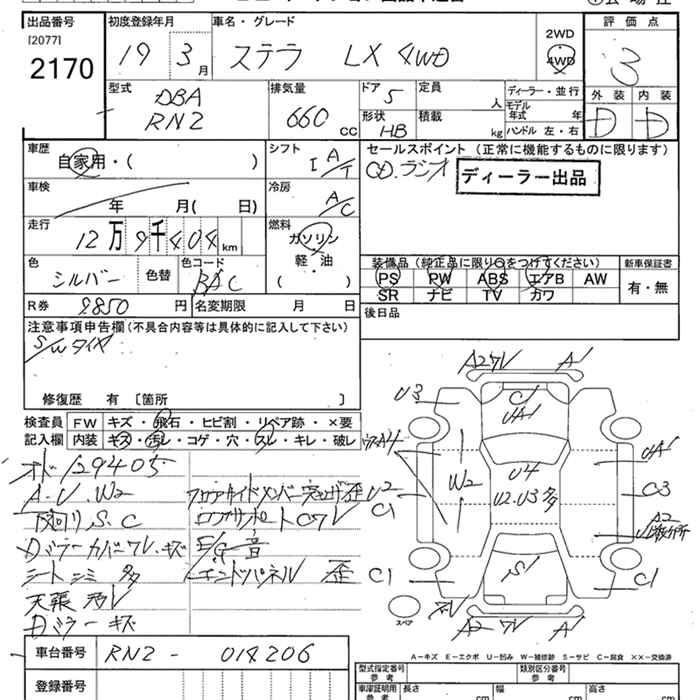 出品番号 初度登録年月 車名・グレード 評価点
[2077]
2170
19 3月 ステラ LX 4WD 2WD 4WD 3
型式 排気量 ドア 定員 ディーラー・並行 外装 内装
DBA
RN2
660 CC 5 人 モデル年式 年 D D
形状 積載
HB kg ハンドル 左・右
車歴 シフト セールスポイント（正常に機能するものに限ります）
自家用・（ ） I A/T CD.ラジオ ディーラー出品
車検 冷房
年 月（ 日） A/C
走行 燃料
12万9千404km ガソリン
軽・油
（ ）
装備品（純正品に限り○をつけてください） 新車保証書
色 色替 色コード PS PW ABS エアB AW 有・無
シルバー BAC SR ナビ TV カワ
R券 9850円 名変期限 月 日 後日品
注意事項申告欄（不具合内容等は具体的に記入して下さい）
S/Wタイヤ
修復歴 有〔箇所 〕
検査員 FW キズ・飛石・ヒビ割・リペア跡・×要
記入欄 内装 キズ・汚れ・コゲ・穴・スレ・キレ・破レ
129405
A.U.W2
下回リ S.C
Dミラーカバーワレ.キズ
シートシミ 多
天張 汚レ
Dミラー キズ
E/G 音
エンドパネル 歪
A2ワレ A1
U3 C1 UA1
A4 W2 U4 UA1
U2 C1 U2.U3多 C3
A2
C1 S1 C1
スペア A2ワレ A1
A－キズ E－エクボ U－凹み W－補修跡 S－サビ C－腐食 ××－交換済
車台番号 RN2－014206
登録番号
型式指定番号 参考 類別区分番号 参考
車庫証明用 参考 長さ cm 幅 cm 高さ cm